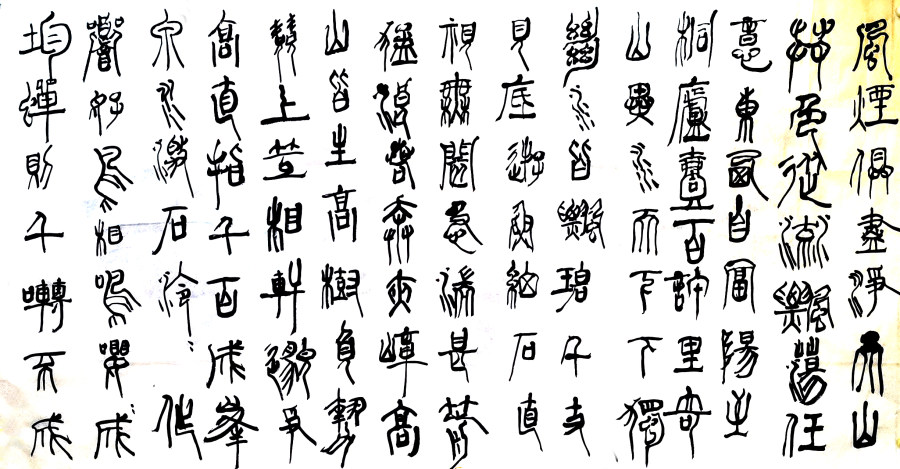 風煙俱盡淨天山
共色從流飄蕩任
意東西自富陽至
桐廬壹百許里奇
山異水天下下獨
絕水皆飄碧千丈
見底遊魚細石直
視無閡急湍甚箭
猛浪若奔夾嶂高
山皆生高樹負勢
競上互相軒邈爭
高直指千百成峰
泉水激石泠〻作
響好鳥相鳴嚶〻成
均蟬則千囀不成